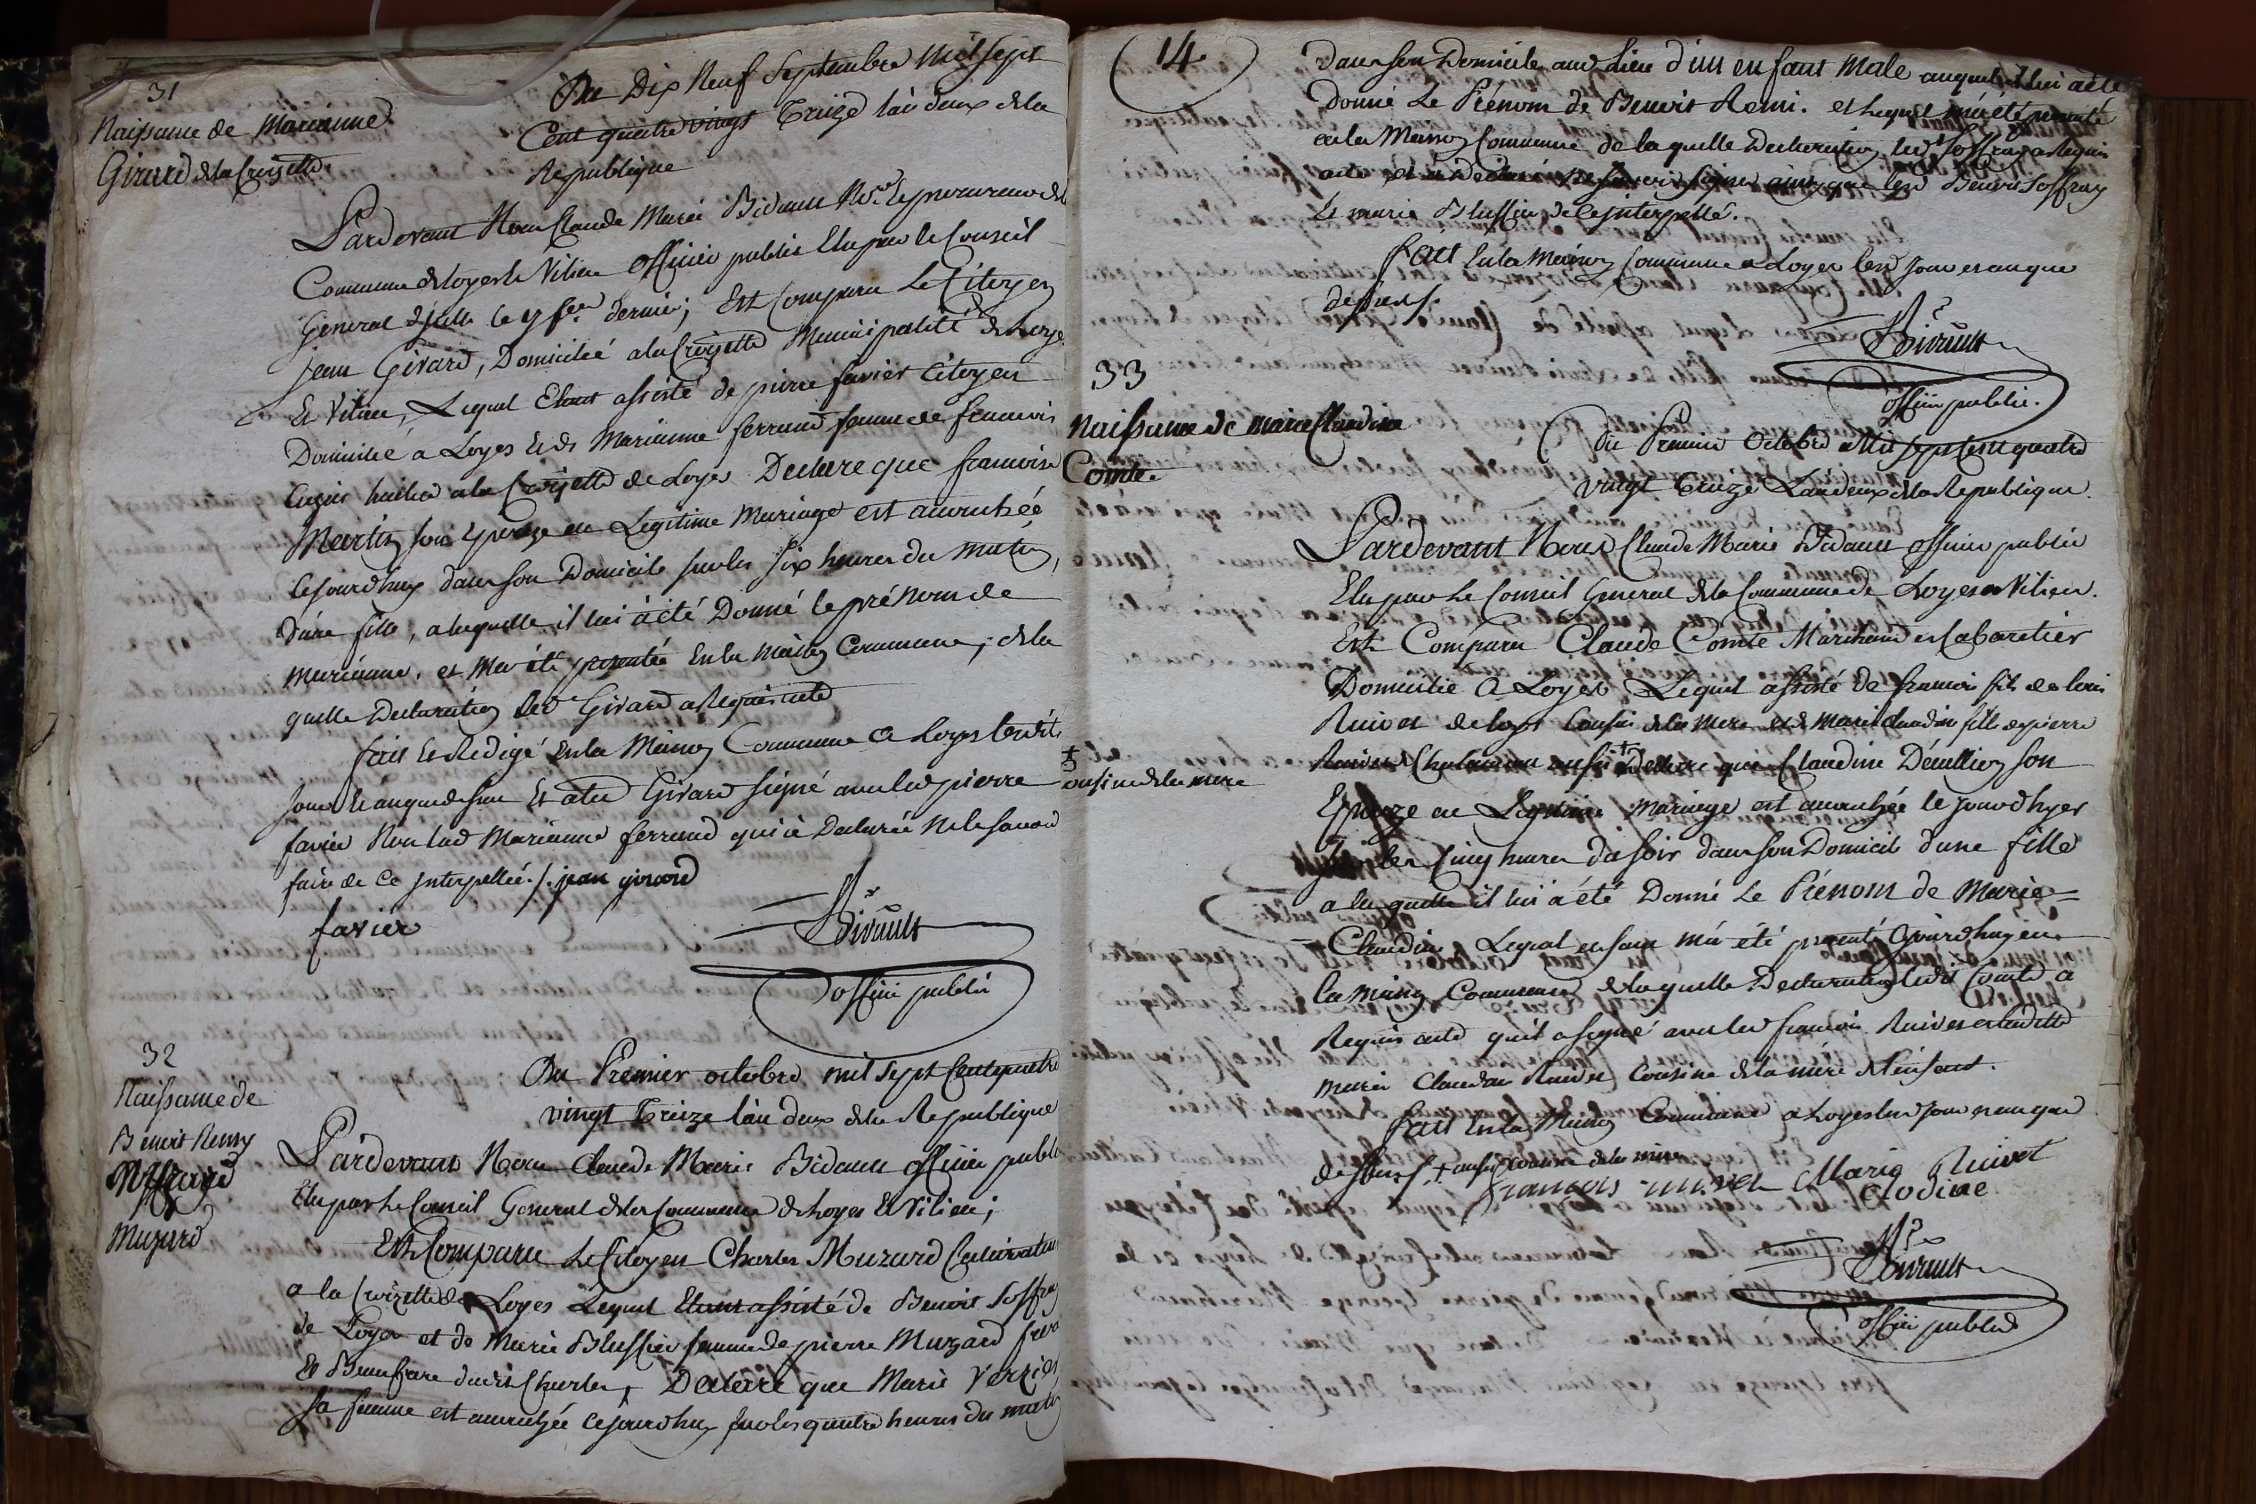 31
Naissance de Marianne
Girard de la Croizette
Du Dix Neuf Septembre Mil sept
Cent quatre vingt Treize l'an deux de la
Republique
Pardevant Nous Claude Marie Bidault procureur de la
Commune de Loyes le Vilieu officier public Elu par le Conseil
General d'icelle le dernier; Est Comparu Le Citoyen
jean Girard, Domicilié a la Croizette Municipalité de Loyes
Et Vilieu, Lequel Etant assisté de pierre favier citoyen
Domicilié a Loyes Et de Marianne ferrand femme de francois
habitant a la Croizette de Loyes Declare que francoise
Martin son Epouze en Legitime Mariage est accouchée
cejourdhuy dans son Domicile sur les six heures du matin,
d'une fille, a laquelle il lui a été Donné le prénom de
marianne, et m'a été presentée En la maison Commune; de la
quelle Declaration led Girard a Requis acte
fait Et Redigé En la Maison Commune a Loyes lesdits
jour Et an que dessus Et a led Girard signé avec led pierre
favier Non lad Marianne ferrand qui a Declarée Ne le savoir
faire de ce Interpellée ./. jean girard
favier
Bidault
officier public
32
Naissance de
Benoit Remy
Muzard
Du Premier octobre mil sept Cent quatre
vingt Treize l'an deux de la Republique
Pardevant Nous Claude Marie Bidault officier public
Elu par le Conseil General de la Commune de Loyes Et Vilieu;
Est Comparu Le Citoyen Charles Muzard Cultivateur
a la Croizette de Loyes Lequel Etant assisté de Benoit Joffray
de Loyes et de Marie Blussier femme de pierre Muzard frere
Et Beaufrere dudit Charles, Declare que Marie
sa femme est accouchée cejourdhuy sur les quatre heures du matin
14
dans son Domicile aud Lieu d'un enfant Male auquel il lui a été
donné Le Prénom de Benoit Remi. et lequel m'a été presenté
en la Maison Commune de laquelle Declaration led Joffray a Requis
acte et a Declaré ne savoir signer ainsi que led Benoit Joffray
Et marie Blussier de ce interpellé.
fait En la Maison Commune a Loyes lesd jour et an que
dessus ./.
Bidault
officier public.
33
Naissance de marie Claudine
Comte.
Du Premier Octobre Mil sept Cent quatre
vingt Treize L'an deux de la Republique.
Pardevant Nous Claude Marie Bidault officier public
Elu par Le Conseil General de la Commune de Loyes et Vilieu.
Est Comparu Claude Comte Marchand et Cabaretier
Domicilié a Loyes Lequel assisté de francois fils de louis
Ruivet de loyes Cousin de la mere et de marie claudine fille de pierre
Ruivet aussi + Declare que Claudine son
Epouze en Legitime Mariage est accouchée le jour d'hyer
sur les Cinq heures du soir dans son Domicile d'une fille
a laquelle il lui a été Donné Le Prénom de Marie=
Claudine Lequel enfant m'a été presenté aujourdhuy en
la maison Commune de laquelle Declaration ledit Comte a
Requis acte qu'il a signé avec led francois Ruivet et ladite
marie Claudine Ruivet Cousine de la mère de l'enfant.
fait En la Maison Commune a Loyes lesd jour et an que
dessus ./. + aussi cousine de la mere
+
cousine de la mere
francois ruivet Marie Ruivet
Clodine
Bidault
officier public